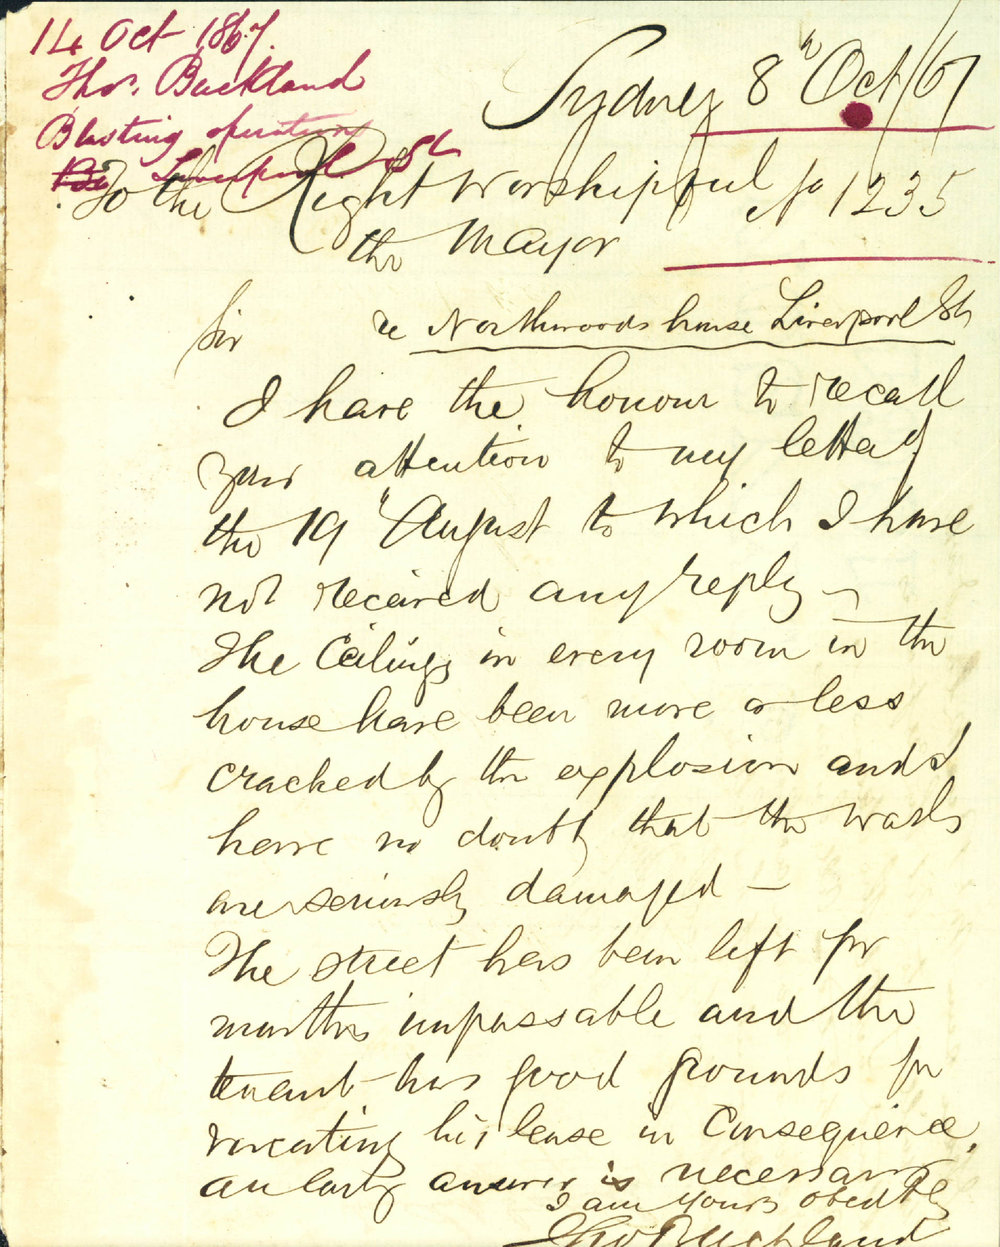 14 Oct 1867.
Thos. Buckland
Blasting operations
Liverpool St
Sydney 8th Oct/67
To the Right Worshipful
No 1235
the Mayor
Sir re Northwoods house Liverpool St
I have the honour to recall
your attention to my letter of
the 19th August to which I have
not received any reply –
The Ceilings in every room in the
house have been more or less
cracked by the explosion and I
have no doubt that the walls
are seriously damaged –
The street has been left for
months impassable and the
tenant has good grounds for
vacating his lease in Consequence,
an early answer is necessary.
I am Yours obedtly
Thos Buckland